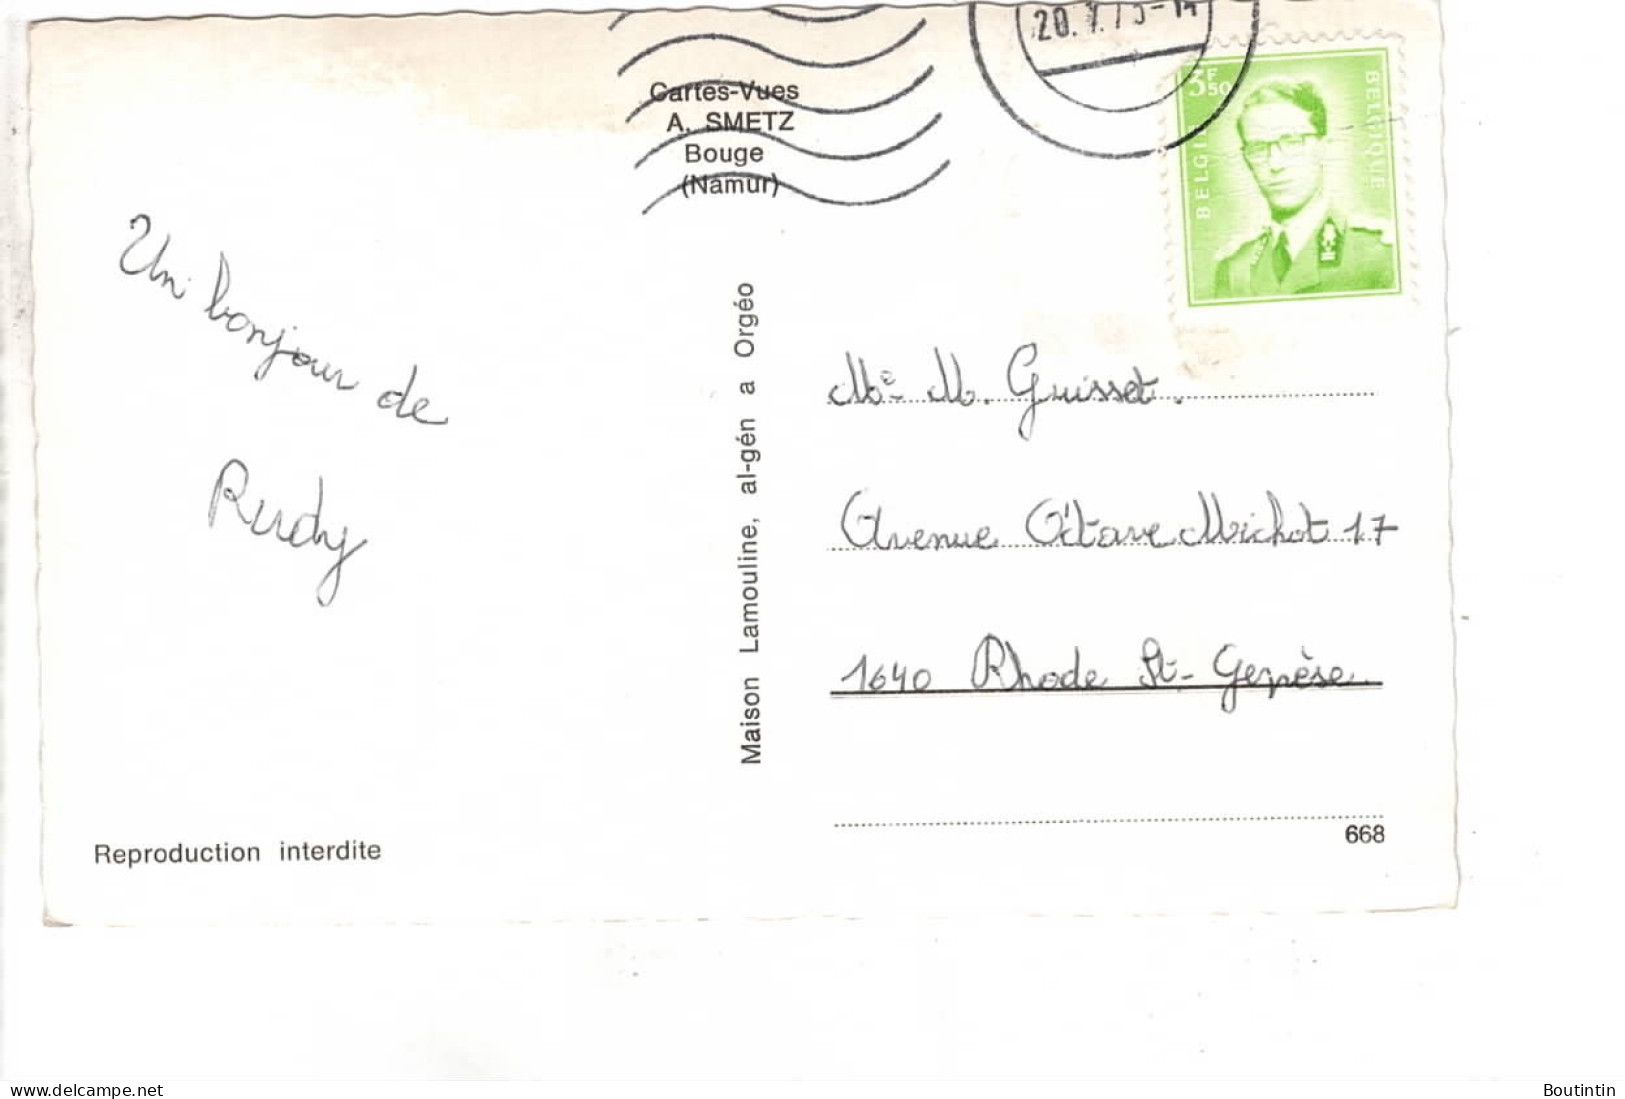 20.
Cartes-Vues
A. SMETZ
Bouge
(Namur)
3F50
BELGIE
BELGIQUE
Un bonjour de
Rudy
Maison Lamouline, al-gén a Orgéo
Me. M. Guisset.
Avenue Octave Michot 17
1640 Rhode St-Genèse.
668
Reproduction interdite
www.delcampe.net
Boutintin